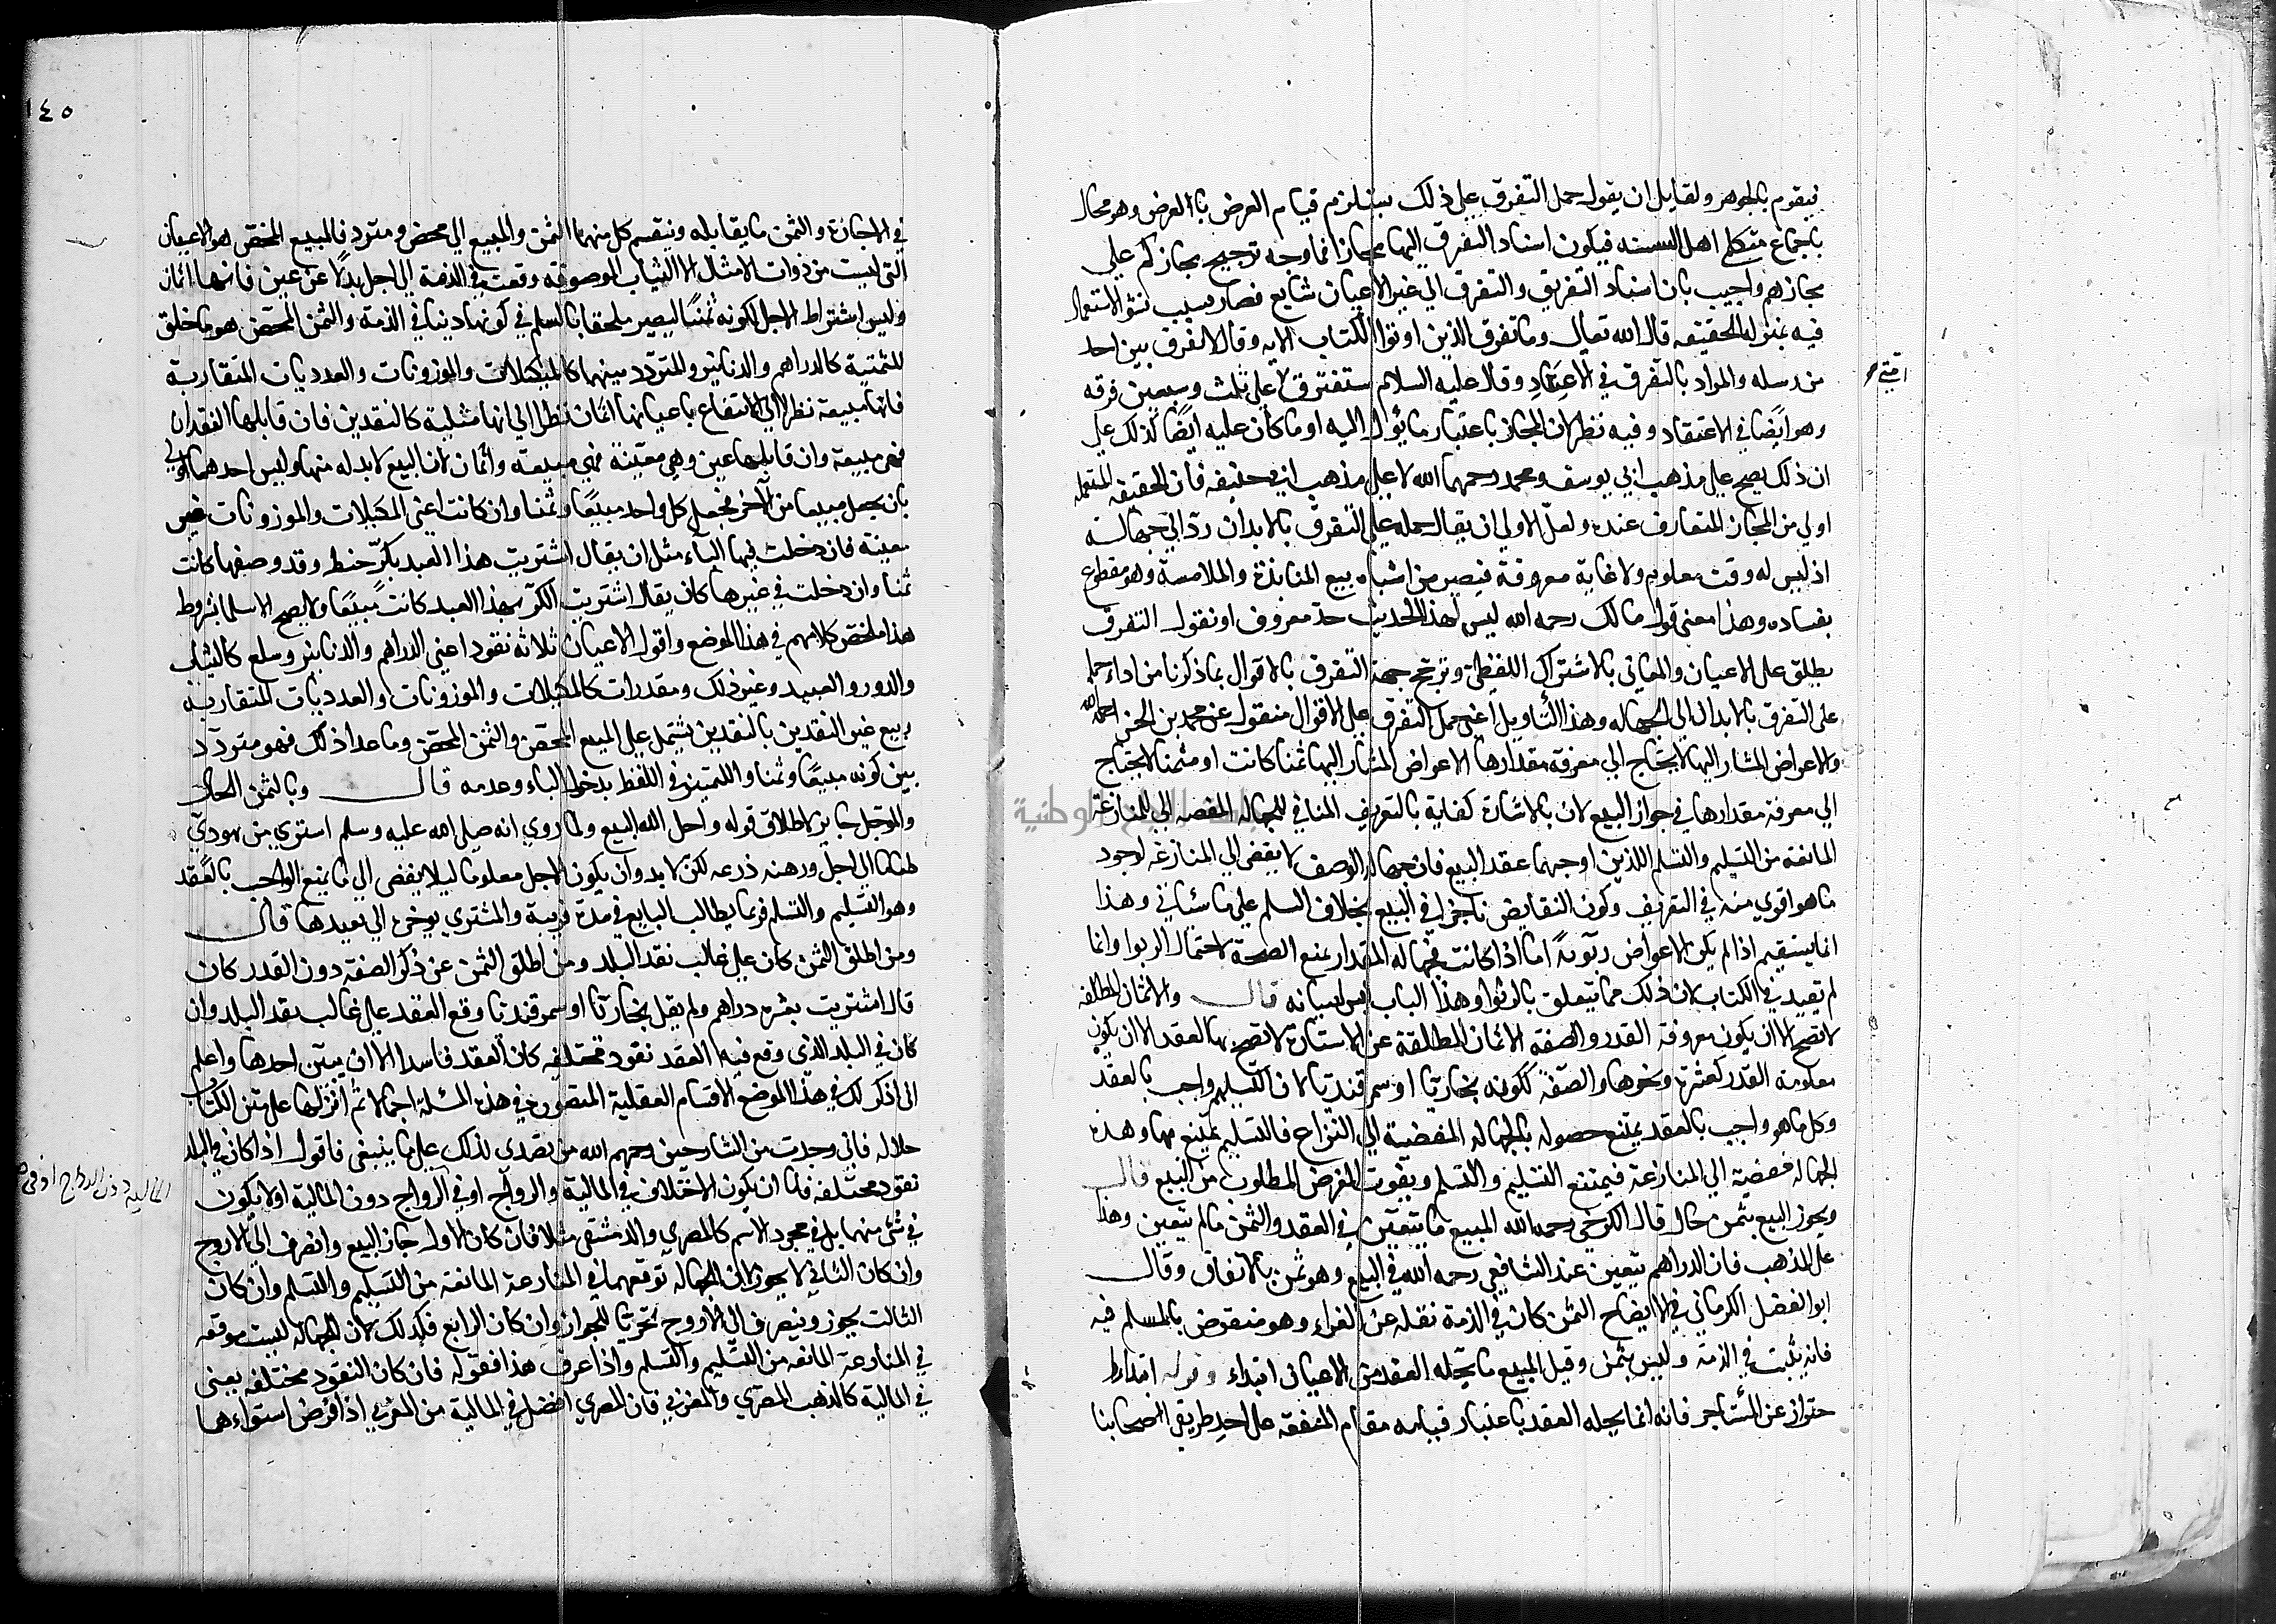 فيقوم بالجوهر ولقايل ان يقول حمل التفرق علي ذلك يستلزم قيام العرض بالعرض وهو محال
باجماع متكلمي اهل السنه فيكون اسناد التفرق اليها مجازا فما وجه ترجيح مجازكم علي
مجازهم واجيب بان اسناد التفريق والتفرق الي غير الاعيان شايع فصار بسبب الاستعمال
فيه بمنزله الحقيقه قال الله تعالي وما تفرق الذين اوتوا الكتاب الايه وقال لا نفرق بين احد
من رسله والمراد بالتفرق في الاعتقاد وقال عليه السلام ستفترق امتي علي ثلث وسبعين فرقه
امتي
وهو ايضا في الاعتقاد وفيه نظر لان المجاز باعتبار ما يؤل اليه او ما كان عليه ايضا كذلك علي
ان ذلك يصح علي مذهب ابي يوسف ومحمد رحمهما الله لا علي مذهب ابي حنيفه فان الحقيقه المستعمله
اولي من المجاز المتعارف عنده ولعل الاولي ان يقال حمله علي التفرق بالابدان رد الي جهالة
اذ ليس له وقت معلوم ولا غاية معروفة فيصير من اشباه بيع المنابذة والملامسة وهو مقطوع
بفساده وهذا معني قول مالك رحمه الله ليس لهذا الحديث حد معروف او نقول التفرق
يطلق علي الاعيان والمعاني بالاشتراك اللفظي وترجح جهة التفرق بالاقوال بما ذكرنا من اداء حمله
علي التفرق بالابدان الي الجهاله وهذا التأويل اعني حمل التفرق علي الاقوال منقول عن محمد بن الحسن رحمه الله
والاعواض المشار اليها لا يحتاج الي معرفة مقدارها الاعواض المشار اليها ثمنا كانت او مثمنا لا يحتاج
الي معرفة مقدارها في جواز البيع لان بالاشارة كفاية بالتعريف المنافي للجهاله المفضيه الي المنازعة
المانعه من التسليم والتسلم اللذين اوجبهما عقد البيع فان جهالة الوصف لا يفضي الي المنازعه لوجود
ما هو اقوي منه في التعريف وكون التقابض ناجزا في البيع بخلاف السلم علي ما سيأتي وهذا
انما يستقيم اذا لم يكن الاعواض ربوية اما اذا كانت فجهالة المقدار يمنع الصحة لاحتمال الربوا وانما
لم يقيد في الكتاب لان ذلك مما يتعلق بالربوا وهذا الباب ليس لبيانه قال والاثمان المطلقه
لا تصح الا ان يكون معروفة القدر والصفه الاثمان المطلقة عن الاشارة لا تصح بها العقد الا ان يكون
معلومة القدر كعشرة ونحوها والصفه ككونه بخاريا او سمرقنديا لان التسليم واجب بالعقد
وكل ما هو واجب بالعقد يمتنع حصوله بالجهالة المفضية الي النزاع فالتسليم يمتنع بها وهذه
الجهالة مفضية الي المنازعة فيمتنع التسليم والتسلم ويفوت الغرض المطلوب من البيع قال
ويجوز البيع بثمن حال قال الكرخي رحمه الله المبيع ما يتعين في العقد والثمن ما لم يتعين وهذا
علي المذهب فان الدراهم يتعين عند الشافعي رحمه الله في البيع وهو ثمن بالاتفاق وقال
ابو الفضل الكرماني في الايضاح الثمن كان في الذمة نقله عن الفراء وهو منقوض بالمسلم فيه
فانه يثبت في الذمة وليس بثمن وقيل المبيع ما يحله العقد من الاعيان ابتداء وقوله ابتداء
احتراز عن المستأجر فانه انما يحله العقد باعتبار قيامه مقام المنفعه علي احد طريقي اصحابنا
١٤٥
في الاجازة والثمن ما يقابله وينقسم كل منهما الثمن والمبيع الي محض ومتردد فالمبيع المحض هو الاعيان
التي ليست من ذوات الامثال الا الثياب الموصوفه وقعت في الذمة الي اجل بدلا عن عين فانها اثمان
وليس اشتراط الاجل لكونه ثمنا ليصير ملحقا بالسلم في كونها دينا في الذمة والثمن المحض هو ما خلق
للثمنية كالدراهم والدنانير والمتردد بينهما كالمكيلات والموزونات والعدديات المتقاربة
فانها مبيعة نظرا الي الانتفاع باعيانها اثمان نظرا الي انها مثلية كالنقدين فان قابلها النقدان
فهي مبيعة وان قابلها عين وهي معينة فهي مبيعة واثمان لان البيع لا بد له منهما وليس احدهما اولي
بان يجعل مبيعا من الآخر فجعل كل واحد مبيعا وثمنا وان كانت اعني المكيلات والموزونات غير
معينة فان دخلت فيها الباء مثل ان يقال اشتريت هذا العبد بكر حنطه وقد وصفها كانت
ثمنا وان دخلت في غيرها كان يقال اشتريت الكر بهذا العبد كانت مبيعا ولا يصح الا سلما بشروط
هذا ملخص كلامهم في هذا الموضع واقول الاعيان ثلاثة نقود اعني الدراهم والدنانير وسلع كالثياب
والدور والعبيد وغير ذلك ومقدرات كالمكيلات والموزونات والعدديات المتقاربة
وبيع غير النقدين بالنقدين يشتمل علي المبيع المحض والثمن المحض وما عدا ذلك فهو متردد
بين كونه مبيعا وثمنا والتمييز في اللفظ بدخول الباء وعدمه قال وبالثمن الحال
والمؤجل جايز لاطلاق قوله واحل الله البيع ولما روي انه صلي الله عليه وسلم اشتري من يهودي
طعاما الي اجل ورهنه درعه لكن لا بد وان يكون الاجل معلوما ليلا يفضي الي ما يمنع الواجب بالعقد
وهو التسليم والتسلم فربما يطالب البايع في مدة قريبة والمشتري يؤخره الي بعيدها قال
ومن اطلق الثمن كان علي غالب نقد البلد ومن اطلق الثمن عن ذكر الصفة دون القدر كان
قال اشتريت بعشره دراهم ولم يقل بخاريا او سمرقنديا وقع العقد علي غالب نقد البلد وان
كان في البلد الذي وقع فيه العقد نقود مختلفه كان العقد فاسدا الا ان يبين احدها واعلم
اني اذكر لك في هذا الموضع الاقسام العقلية المتصورة في هذه المسئلة اجمالا ثم انزلها علي متن الكتاب
حلاله فاني وجدت من الشارحين رحمهم الله من تصدي لذلك علي ما ينبغي فاقول اذا كان في البلد
نقود مختلفه فاما ان يكون الاختلاف في المالية والرواج او في الرواج دون المالية او لا يكون
المالية دون الرواج او في
في شئ منهما بل في مجرد الاسم كالمصري والدمشقي مثلا فان كان الاول جاز البيع وانصرف الي الاروج
وان كان الثاني لا يجوز لان الجهالة توقعهما في المنازعة المانعة من التسليم والتسلم وان كان
الثالث يجوز وينصرف الي الاروج تحريا للجواز وان كان الرابع فكذلك لان الجهالة ليست موقعه
في المنازعة المانعه من التسليم والتسلم واذا عرف هذا فقوله فان كان النقود مختلفه يعني
في المالية كالذهب المصري والمغربي فان المصري افضل في المالية من المغربي اذا فرض استواءهما